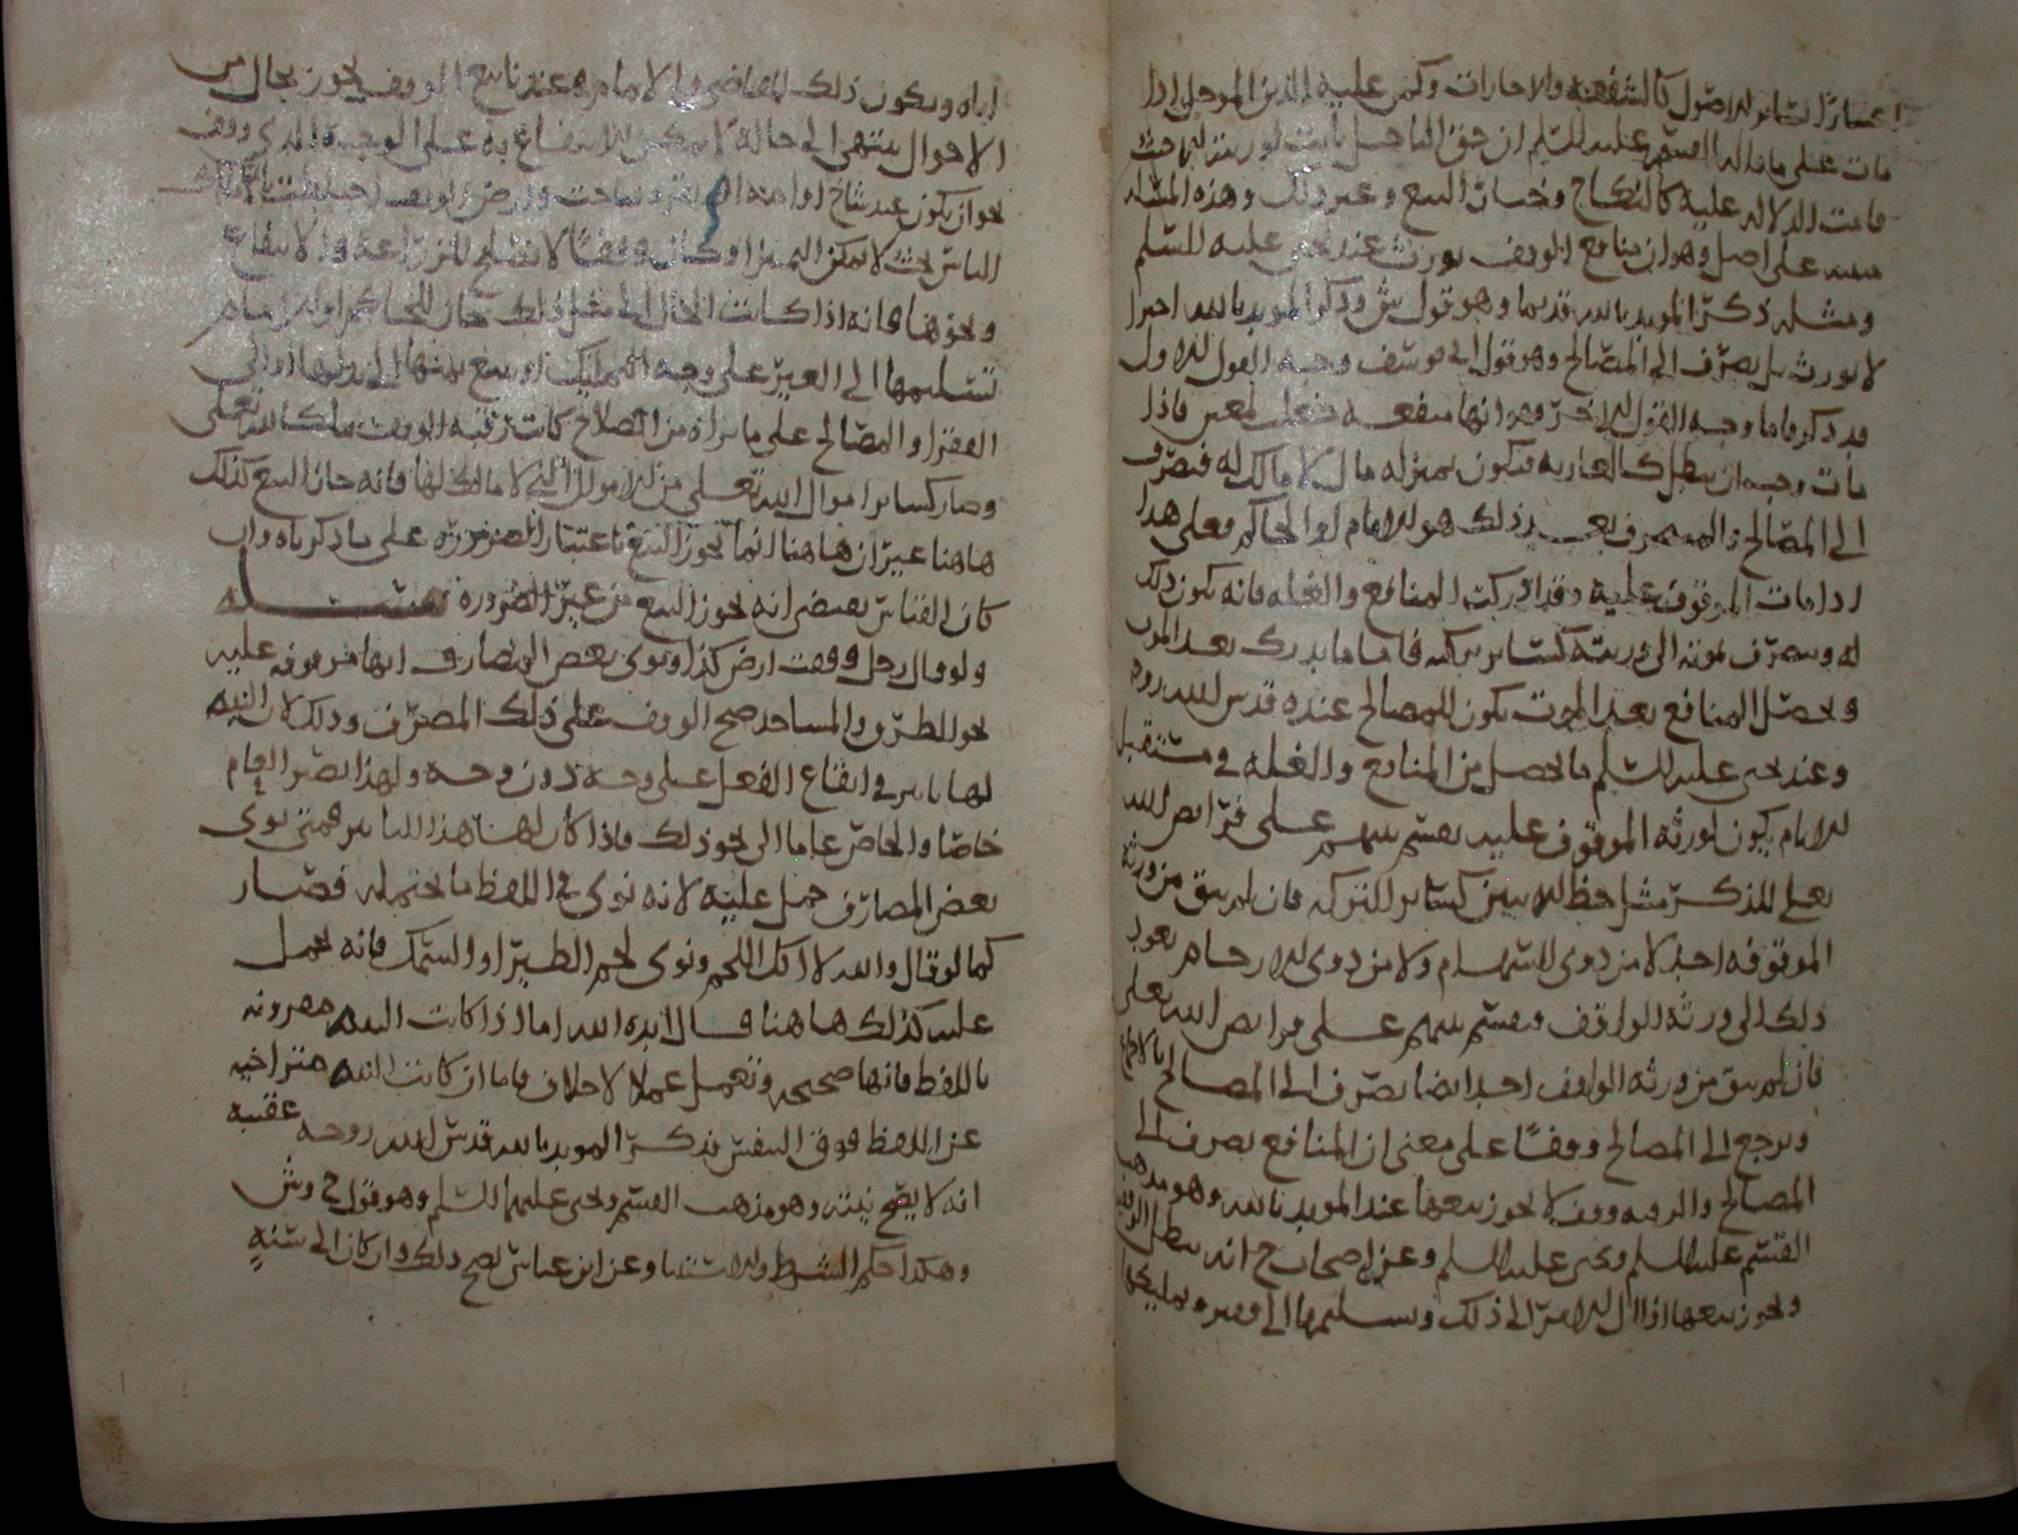 اعتبارا بسائر الاصول كالشفعة والاجارات وكمن عليه الدين الموجل اذا
مات على ما قاله القسم عليه السلم ان حق التاجيل ثابت لورثته الا حيث
قامت الدلاله عليه كالنكاح وخيار البيع وغير ذلك وهذه المسئله
مبنيه على اصل وهو ان منافع الوقف يورث عند يحيى عليه السلم
ومثله ذكر المويد بالله قديما وهو قول ش وذكر المويد بالله اخيرا
لا يورث بل يصرف الى المصالح وهو قول ابي يوسف وجه القول الاول
قد ذكر فاما وجه القول الاخر فهو انها منفعه جعلت لمعين فاذا
مات وجب ان يبطل كالعاريه فيكون بمنزله مال لا مالك له فيصرف
الى المصالح والمتصرف بعد ذلك هو الامام او الحاكم فعلى هذا
اذا مات الموقوف عليه وقد ادركت المنافع والغله فانه يكون ذلك
له ويصرف بموته الى ورثته كسائر تركته فاما ما يدرك بعد الموت
ويحصل المنافع بعد الموت يكون للمصالح عنده قدس الله روحه
وعند يحيى عليه السلم ما يحصل من المنافع والغله في مستقبل
الايام يكون لورثه الموقوف عليه يقسم بينهم على فرائض الله
تعلى للذكر مثل حظ الانثيين كسائر التركه فان لم يبق من ورثه
الموقوفه احد لا من ذوي السهام ولا من ذوي الارحام يعود
ذلك الى ورثه الواقف ويقسم بينهم على فرائض الله تعلى
فان لم يبق من ورثه الواقف احد ايضا يصرف الى المصالح
ويرجع الى المصالح وقفا على معنى ان المنافع يصرف الى
المصالح والرقبه وقف لا يجوز بيعها عند المويد بالله وهو مذهب
القسم عليه السلم ويحيى عليه السلم وعن اصحاب ح انه يبطل الوقف
ويجوز بيعها اذا ال الامر الى ذلك وتسليمها الى فقير وتمليكها
اياه ويكون ذلك للقاضي والامام وعندنا بيع الوقف يجوز بحال من
الاحوال ينتهي الى حاله لا يمكن الانتفاع به على الوجه الذي وقف
نحو ان يكون عبد شاخ او امه وارض الوقف اختلطت باملاك
الناس بحيث لا يمكن التمييز او كان وقفا لا تصلح للزراعة والانتفاع
ونحوها فانه اذا كانت الحال الى مثل ذلك جاز للحاكم او للامام
تسليمها الى الغير على وجه التمليك او بيع ثمنها الى بدلها او الى
الفقرا والمصالح على ما يراه من الصلاح كانت رقبه الوقف ملكا لله تعلى
وصار كسائر اموال الله تعلى من الاموال التي لا مالك لها فانه جاز البيع كذلك
هاهنا غير ان هاهنا انما يجوز البيع باعتبار الضروره على ما ذكرناه وان
كان القياس يقتضي انه يجوز البيع من غير الضروره مسئله
ولو قال رجل وقفت ارض كذا ونوى بعض المصارف انها موقوفه عليه
نحو الطرق والمساجد صح الوقف على ذلك المصرف وذلك لان النيه
لها تاثير في ايقاع الفعل على وجه دون وجه ولهذا يصير العام
خاصا والخاص عاما الى نحو ذلك فاذا كان لها هذا التاثير فمتى نوى
بعض المصارف حمل عليه لانه نوى في اللفظ ما يحتمله فصار
كما لو قال والله لا اكل اللحم ونوى لحم الطير او السمك فانه يحمل
عليه كذلك هاهنا قال ايده الله اما اذا كانت النيه مقرونه
باللفظ فانها صحيحه وتعمل عملا لا خلاف فاما ان كانت النيه متراخيه
عن اللفظ فوق النفس فذكر المويد بالله قدس الله روحه عقيبه
انه لا يصح نيته وهو مذهب القسم ويحيى عليهما السلم وهو قول ح وش
وهكذا حكم الشرط والاستثنا وعن ابن عباس يصح ذلك وان كان الى سنه